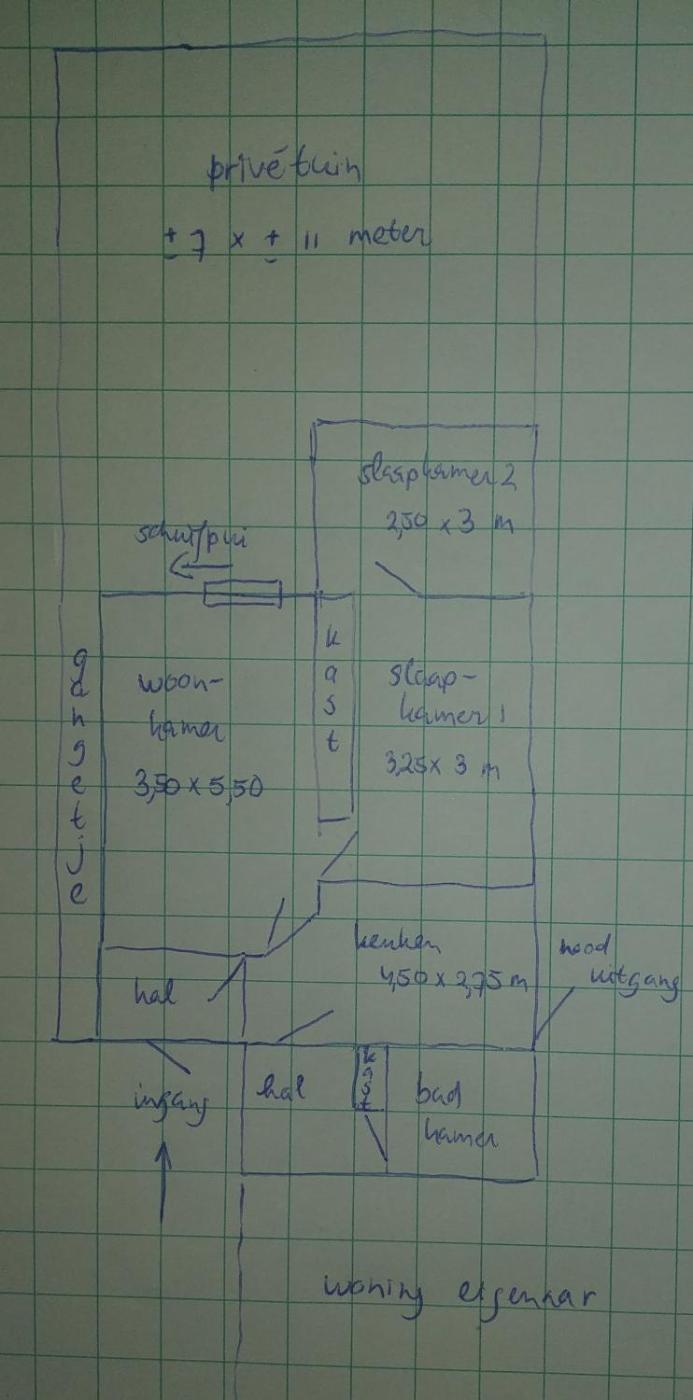 privétuin
± 7 x ± 11 meter
slaapkamer 2
2,50 x 3 m
schuifpui
kast
gangetje
woon-
kamer
3,50 x 5,50
slaap-
kamer 1
3,25 x 3 m
keuken
4,50 x 2,75 m
nood
uitgang
hal
ingang
hal
kast
bad
kamer
woning eigenaar